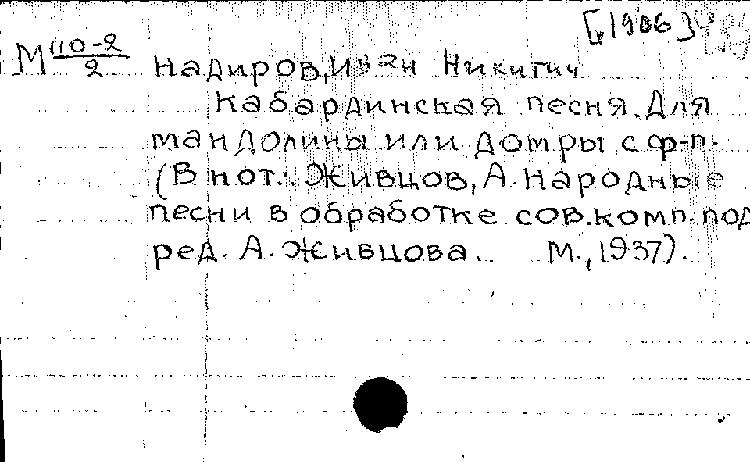 [1906]
М 110-2/2
Надиров, Иван Никитич
Кабардинская песня. Для
мандолины или домры с ф-п.
(В нот.: Живцов, А. Народные
песни в обработке сов. комп. под
ред. А. Живцова. М., 1937).